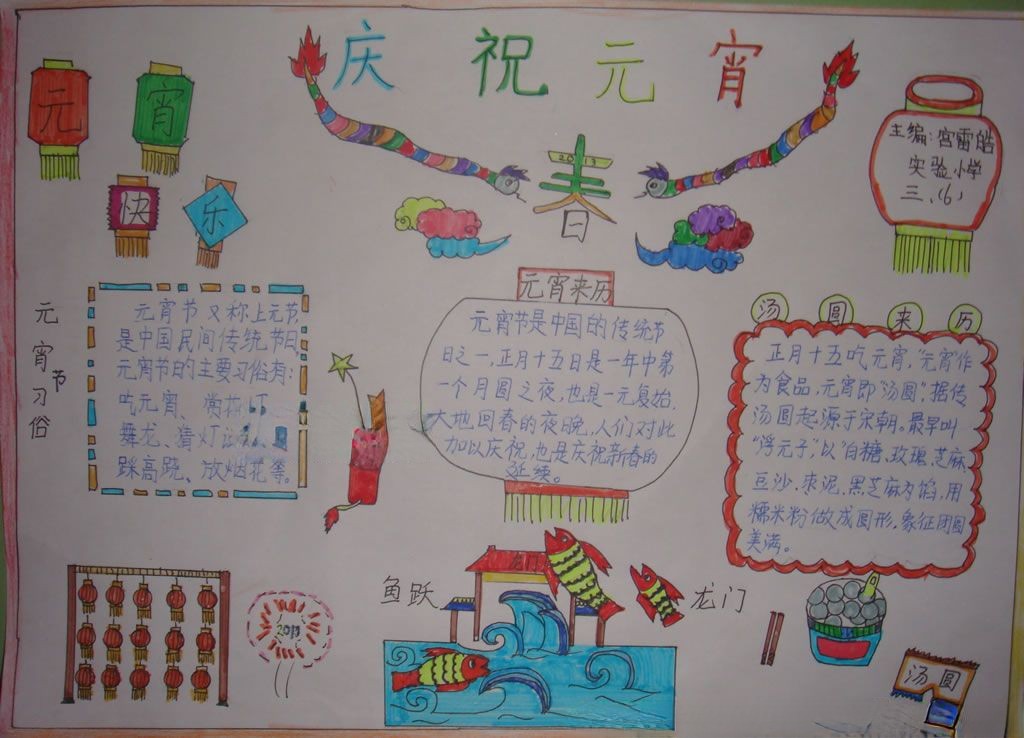 庆祝元宵
元宵
快乐
春
2013
主编:宫雷皓
实验小学
三.(6)
元宵节习俗
元宵节又称上元节
是中国民间传统节日
元宵节日的主要习俗有:
吃元宵、赏花灯
舞龙、猜灯谜
踩高跷、放烟花等。
元宵来历
元宵节是中国的传统节
日之一,正月十五日是一年中第
一个月圆之夜,也是一元复始,
大地回春的夜晚,人们对此
加以庆祝,也是庆祝新春的
延续。
汤圆来历
正月十五吃元宵,“元宵”作
为食品,元宵即“汤圆”,据传
汤圆起源于宋朝。最早叫
“浮元子”以白糖,玫瑰,芝麻,
豆沙,枣泥,黑芝麻为馅,用
糯米粉做成圆形,象征团圆
美满。
鱼跃
龙门
龙门
2013
汤圆